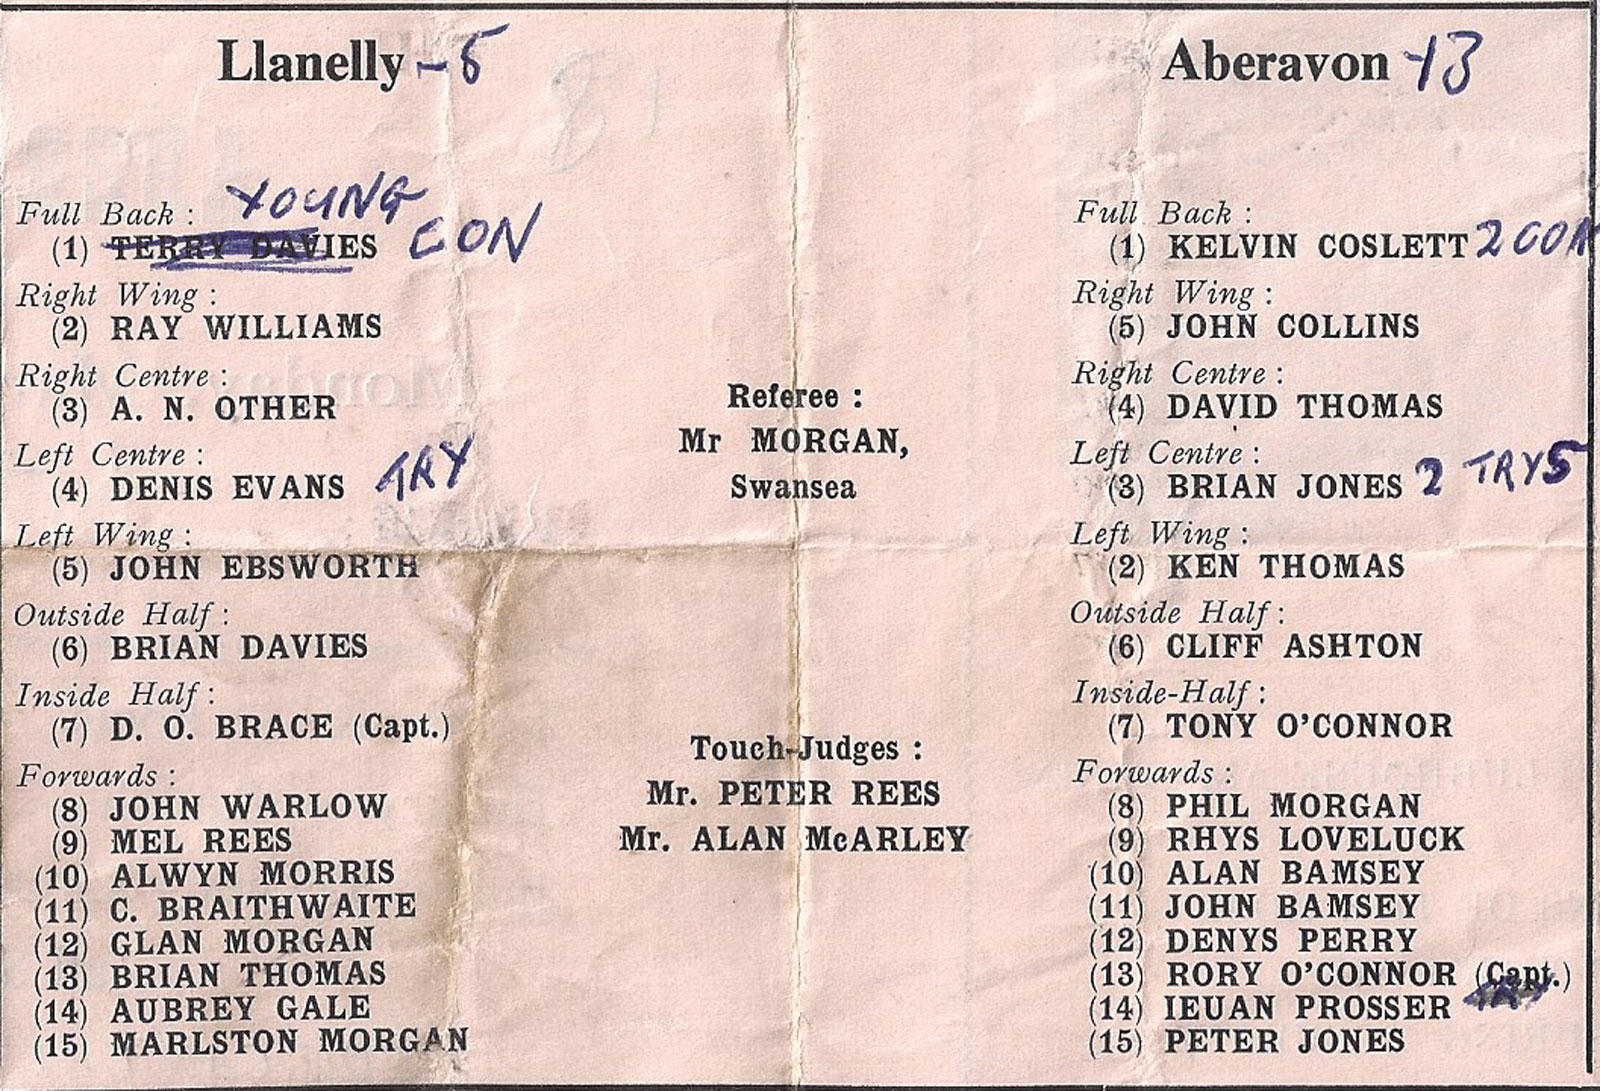 Llanelly - 5
Full Back : YOUNG
(1) TERRY DAVIES CON
Right Wing :
(2) RAY WILLIAMS
Right Centre :
(3) A. N. OTHER
Left Centre :
(4) DENIS EVANS TRY
Left Wing :
(5) JOHN EBSWORTH
Outside Half :
(6) BRIAN DAVIES
Inside Half :
(7) D. O. BRACE (Capt.)
Forwards :
(8) JOHN WARLOW
(9) MEL REES
(10) ALWYN MORRIS
(11) C. BRAITHWAITE
(12) GLAN MORGAN
(13) BRIAN THOMAS
(14) AUBREY GALE
(15) MARLSTON MORGAN
Referee :
Mr MORGAN,
Swansea
Touch-Judges :
Mr. PETER REES
Mr. ALAN McARLEY
Aberavon - 13
Full Back :
(1) KELVIN COSLETT 2 CON
Right Wing :
(5) JOHN COLLINS
Right Centre :
(4) DAVID THOMAS
Left Centre :
(3) BRIAN JONES 2 TRYS
Left Wing :
(2) KEN THOMAS
Outside Half :
(6) CLIFF ASHTON
Inside-Half :
(7) TONY O'CONNOR
Forwards :
(8) PHIL MORGAN
(9) RHYS LOVELUCK
(10) ALAN BAMSEY
(11) JOHN BAMSEY
(12) DENYS PERRY
(13) RORY O'CONNOR (Capt.)
(14) IEUAN PROSSER TRY
(15) PETER JONES